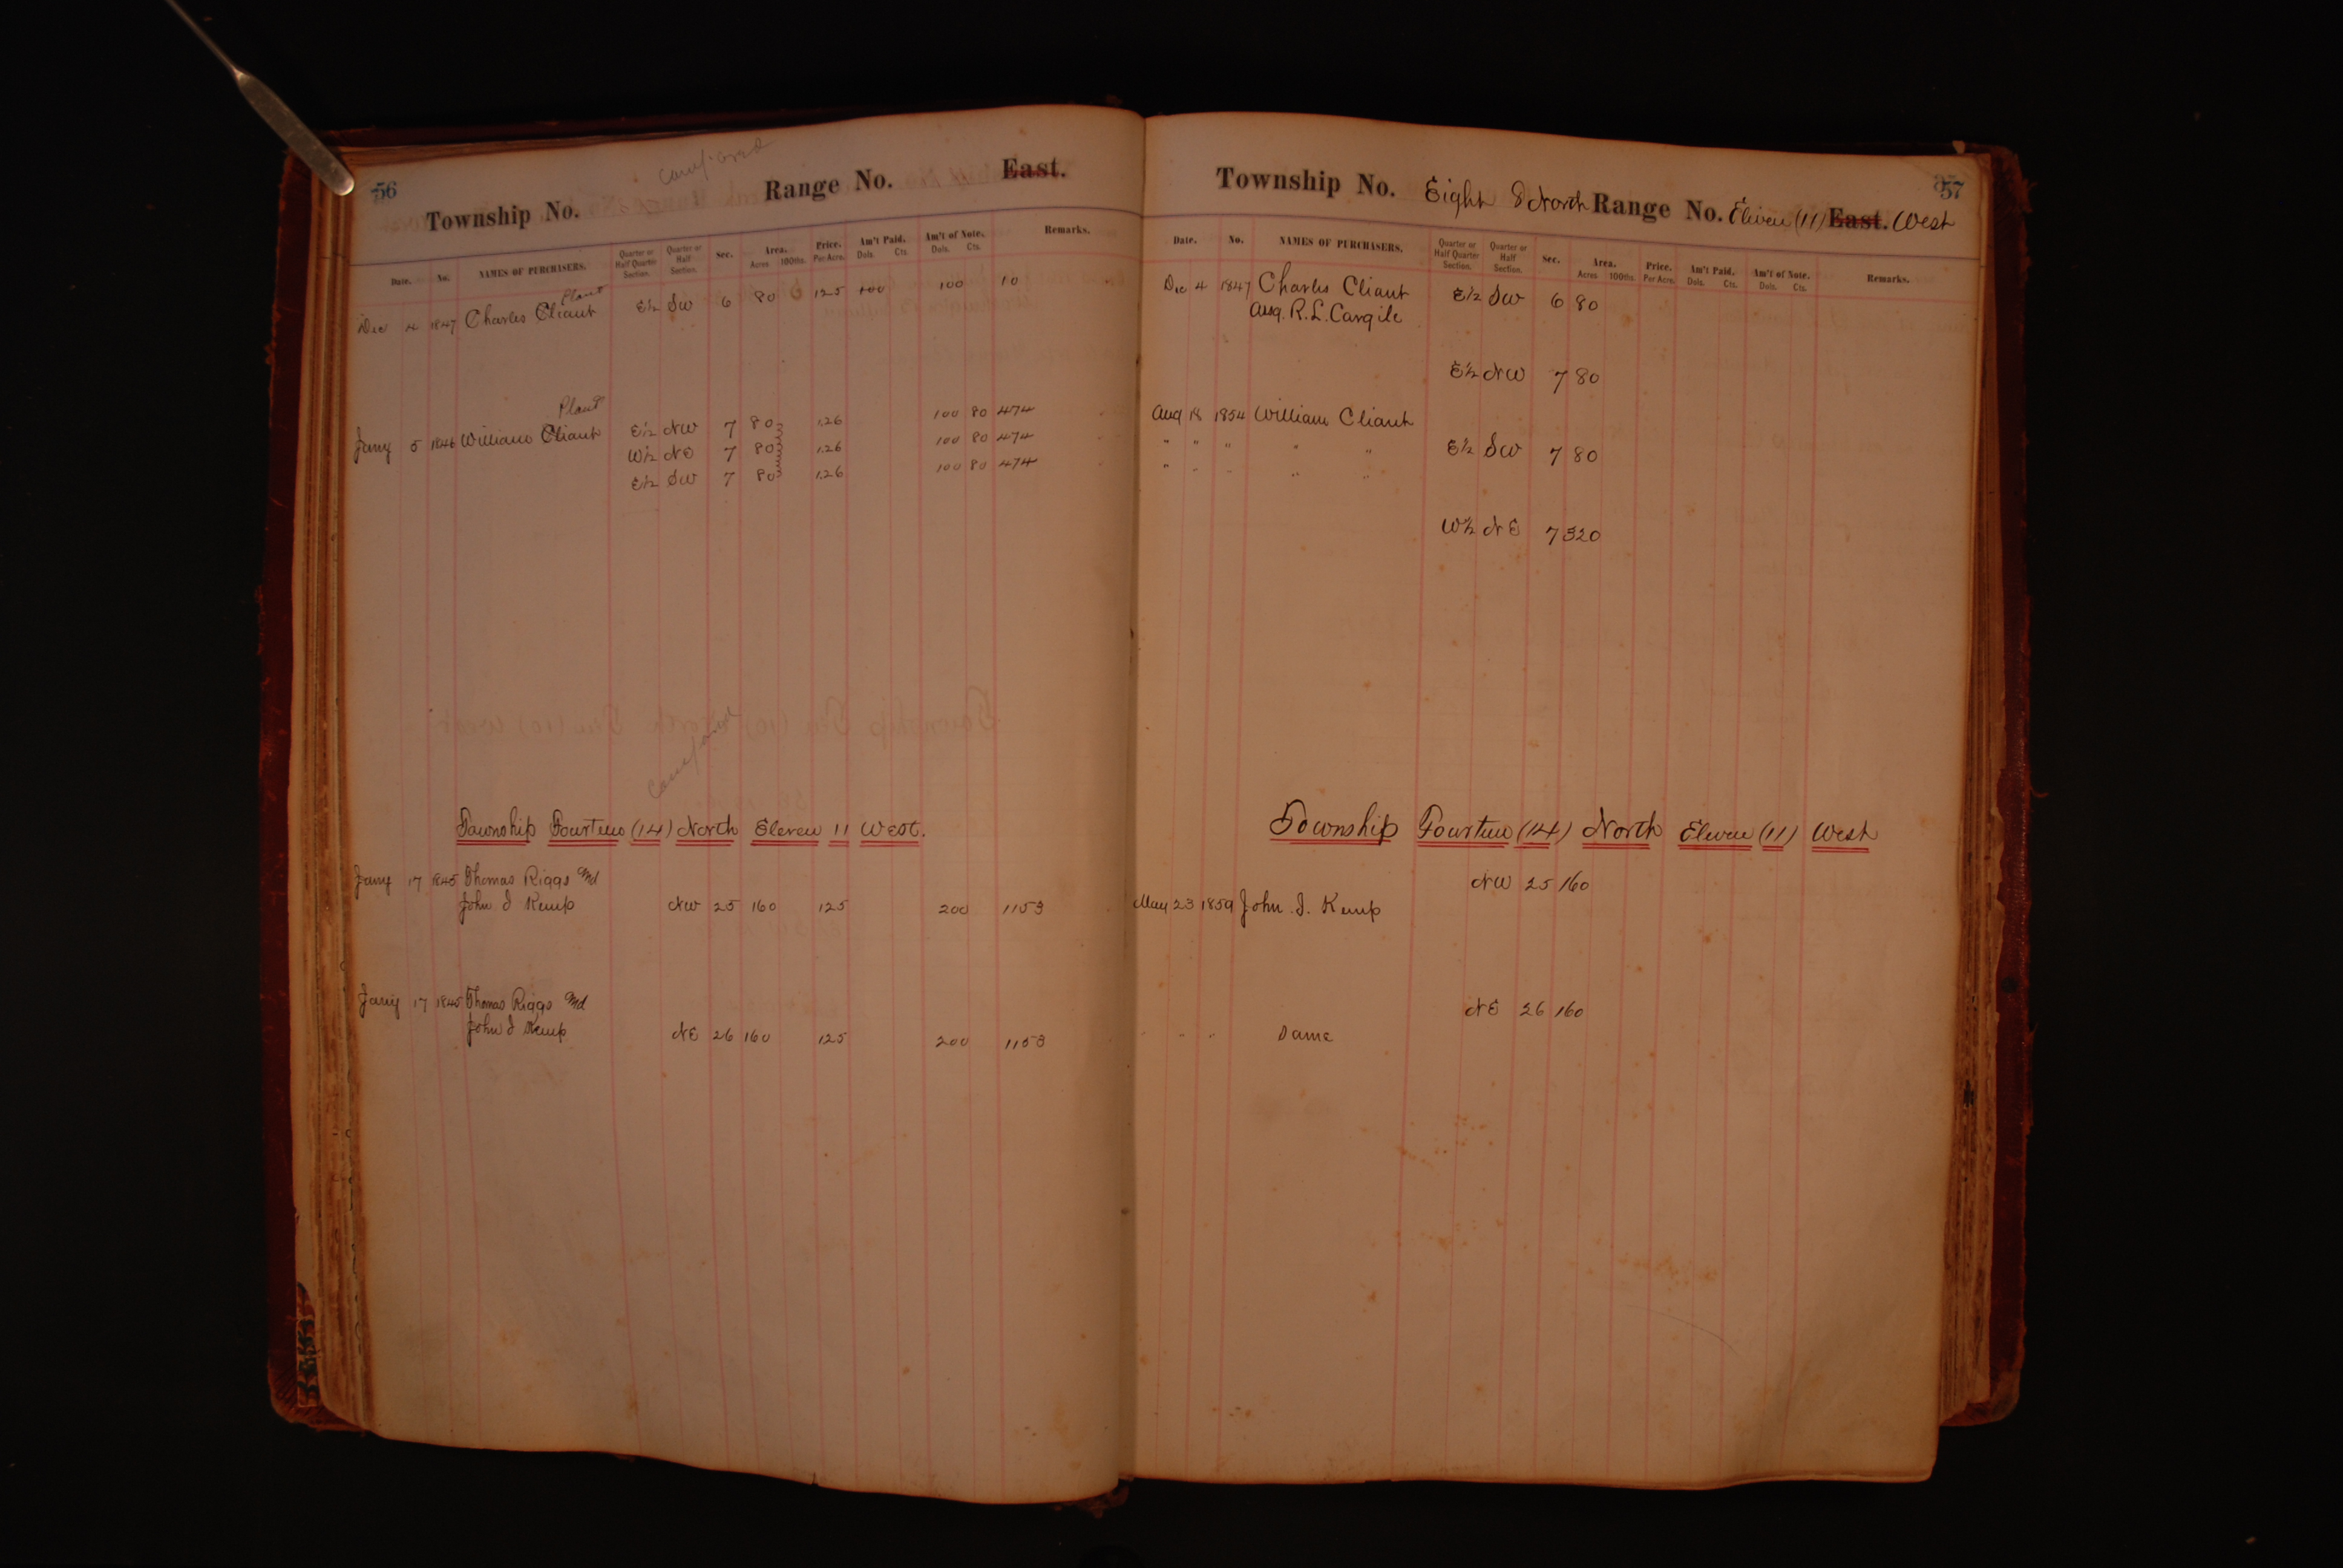 56
compared
Township No. Range No. East.
Date. No. NAMES OF PURCHASERS. Quarter or Half Quarter Section. Quarter or Half Section. Sec. Area. Acres 100ths. Price. Per Acre. Am't Paid. Dols. Cts. Am't of Note. Dols. Cts. Remarks.
Plant
Dec 4 1847 Charles Cliant E½ SW 6 80 125 100 100 10
Plant
Jany 5 1846 William Cliant E½ NW 7 80 1.26 100 80 474
W½ NE 7 80 1.26 100 80 474
E½ SW 7 80 1.26 100 80 474
compared
Township Fourteen (14) North Eleven 11 West.
Jany 17 1845 Thomas Riggs Md
John I Kemp NW 25 160 125 200 1153
Jany 17 1845 Thomas Riggs Md
John I Kemp NE 26 160 125 200 1153
57
Township No. Eight 8 North Range No. Eleven (11) East. West
Date. No. NAMES OF PURCHASERS. Quarter or Half Quarter Section. Quarter or Half Section. Sec. Area. Acres 100ths. Price. Per Acre. Am't Paid. Dols. Cts. Am't of Note. Dols. Cts. Remarks.
Dec 4 1847 Charles Cliant E½ SW 6 80
Assg. R. L. Cargile
E½ NW 7 80
Aug 18 1854 William Cliant
" " " " " E½ SW 7 80
" " " " "
W½ NE 7 320
Township Fourteen (14) North Eleven (11) West
NW 25 160
May 23 1859 John I. Kemp
NE 26 160
" " " Same